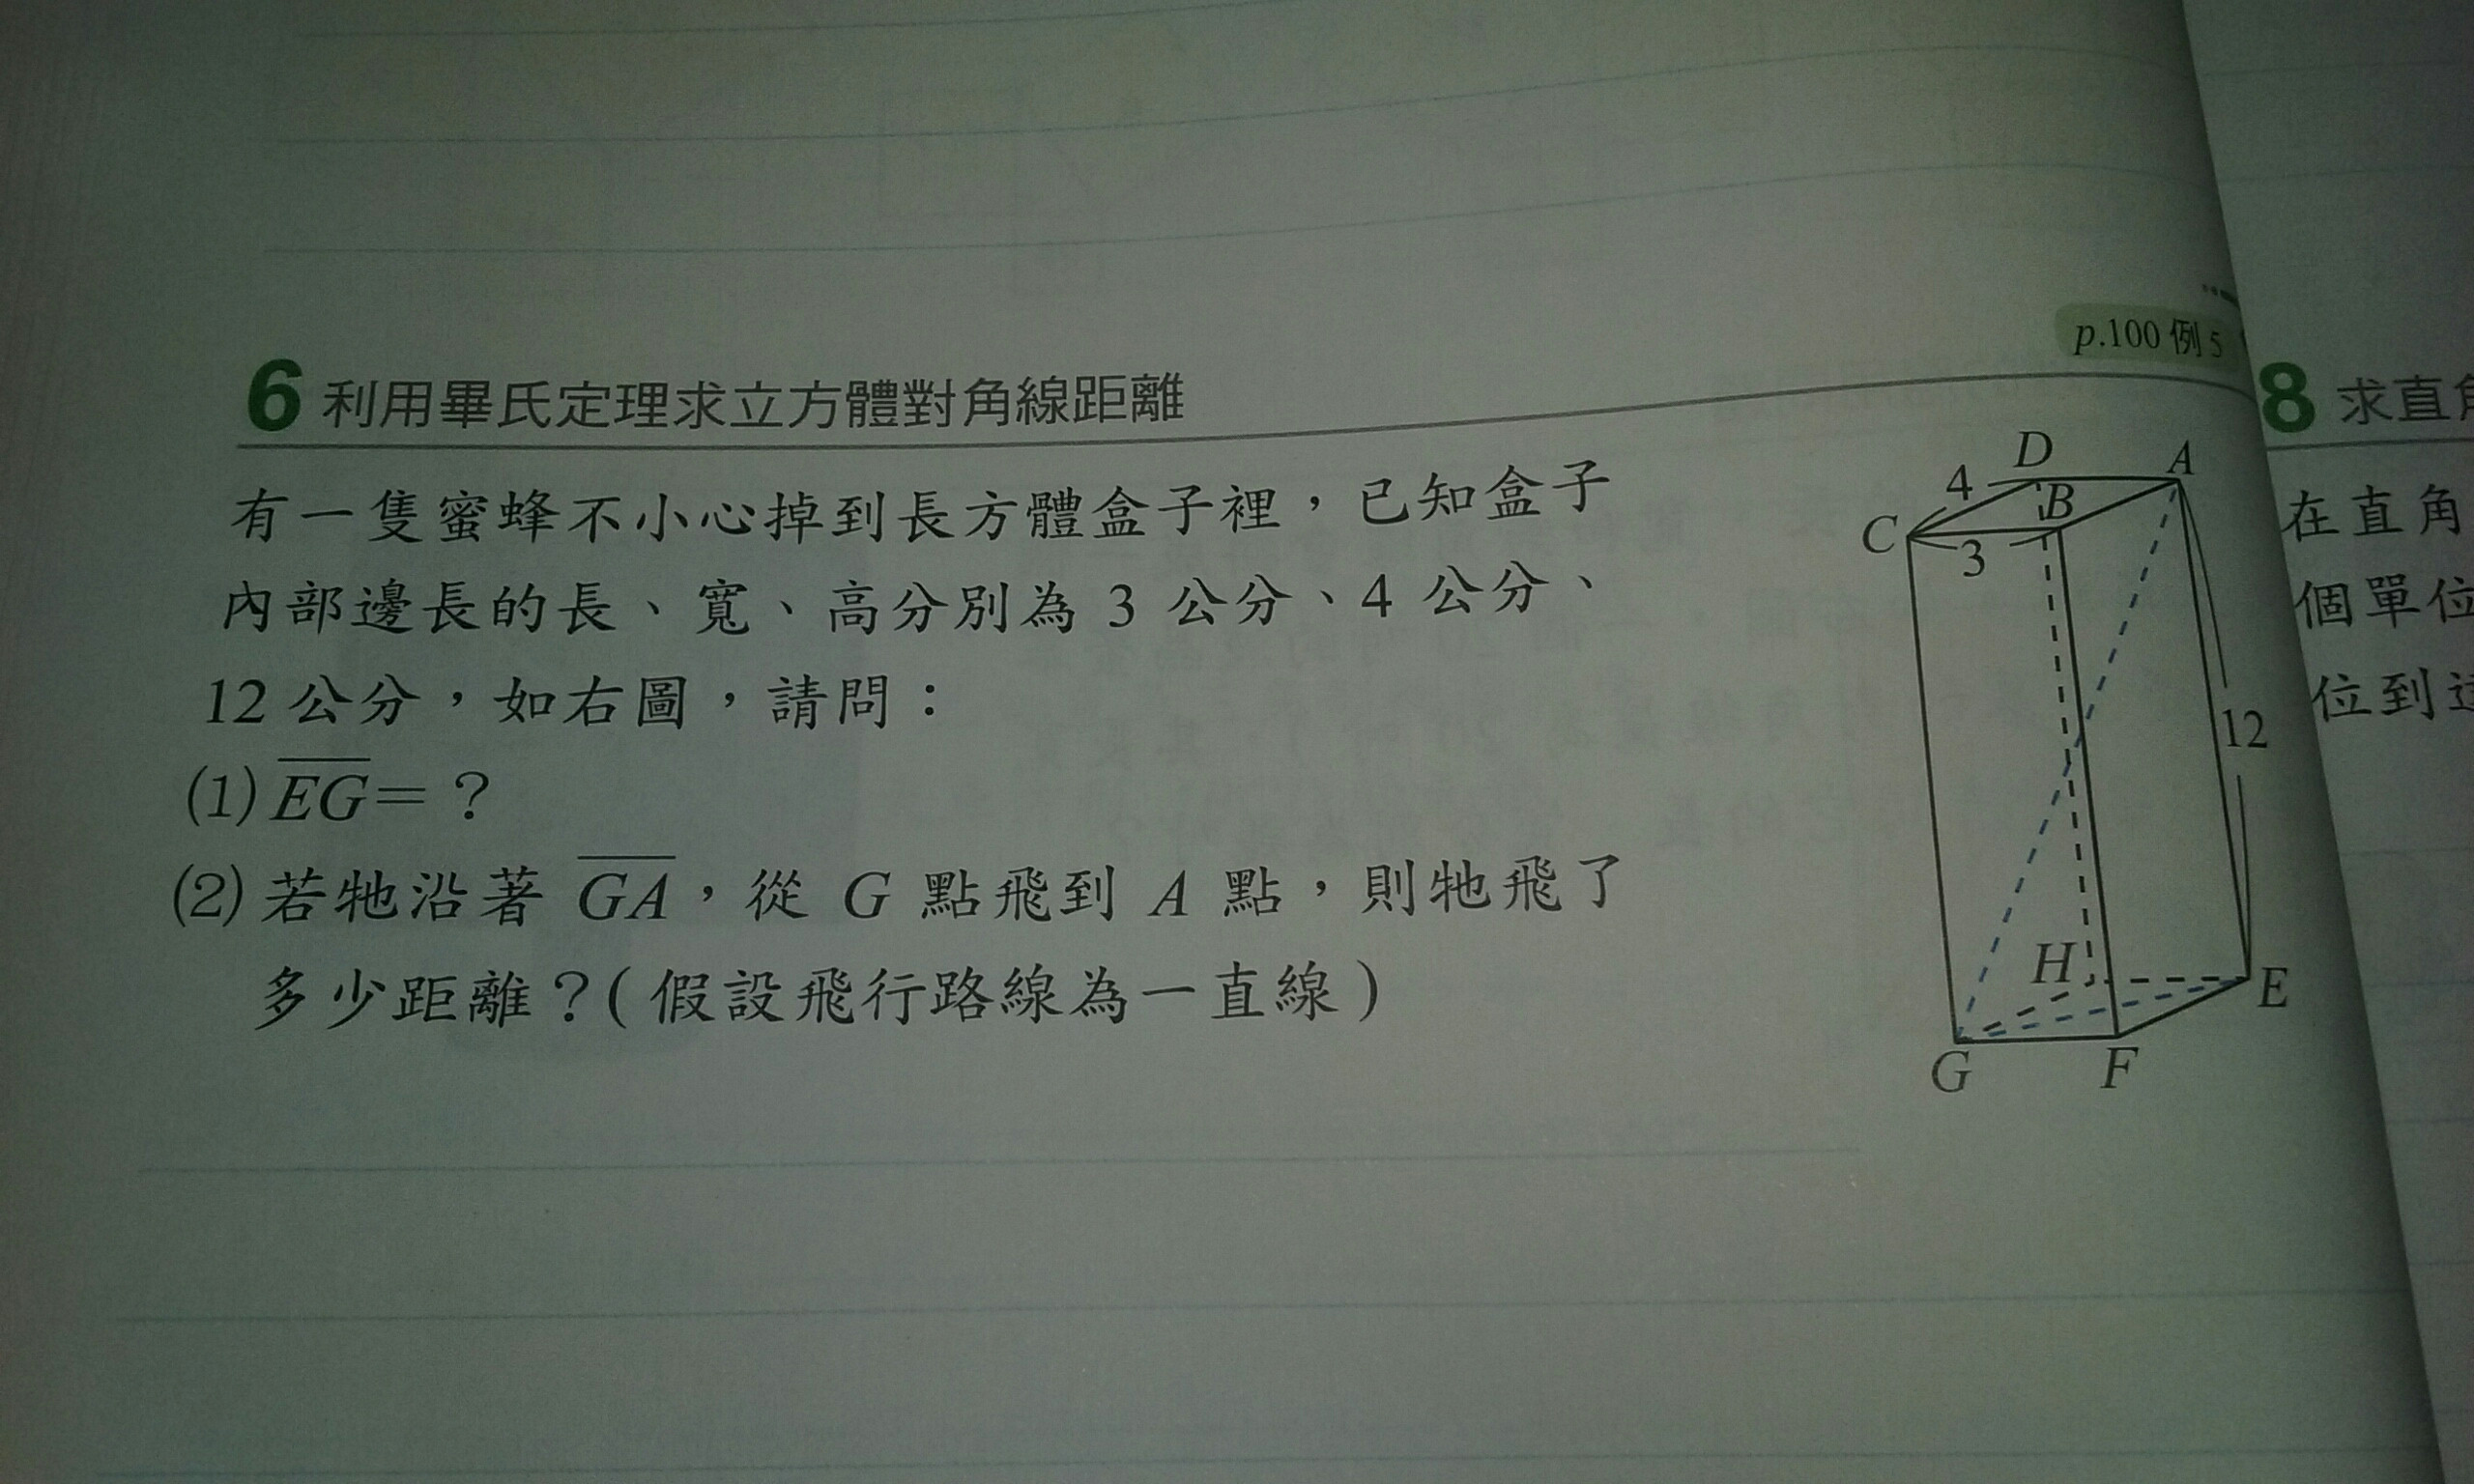 p.100 例 5
6 利用畢氏定理求立方體對角線距離
有一隻蜜蜂不小心掉到長方體盒子裡，已知盒子
內部邊長的長、寬、高分別為 3 公分、4 公分、
12 公分，如右圖，請問：
(1) EG=？
(2) 若牠沿著 GA，從 G 點飛到 A 點，則牠飛了
多少距離？(假設飛行路線為一直線)
D
A
4
B
C
3
12
H
E
G
F
8 求直角
在直角
個單位
位到達